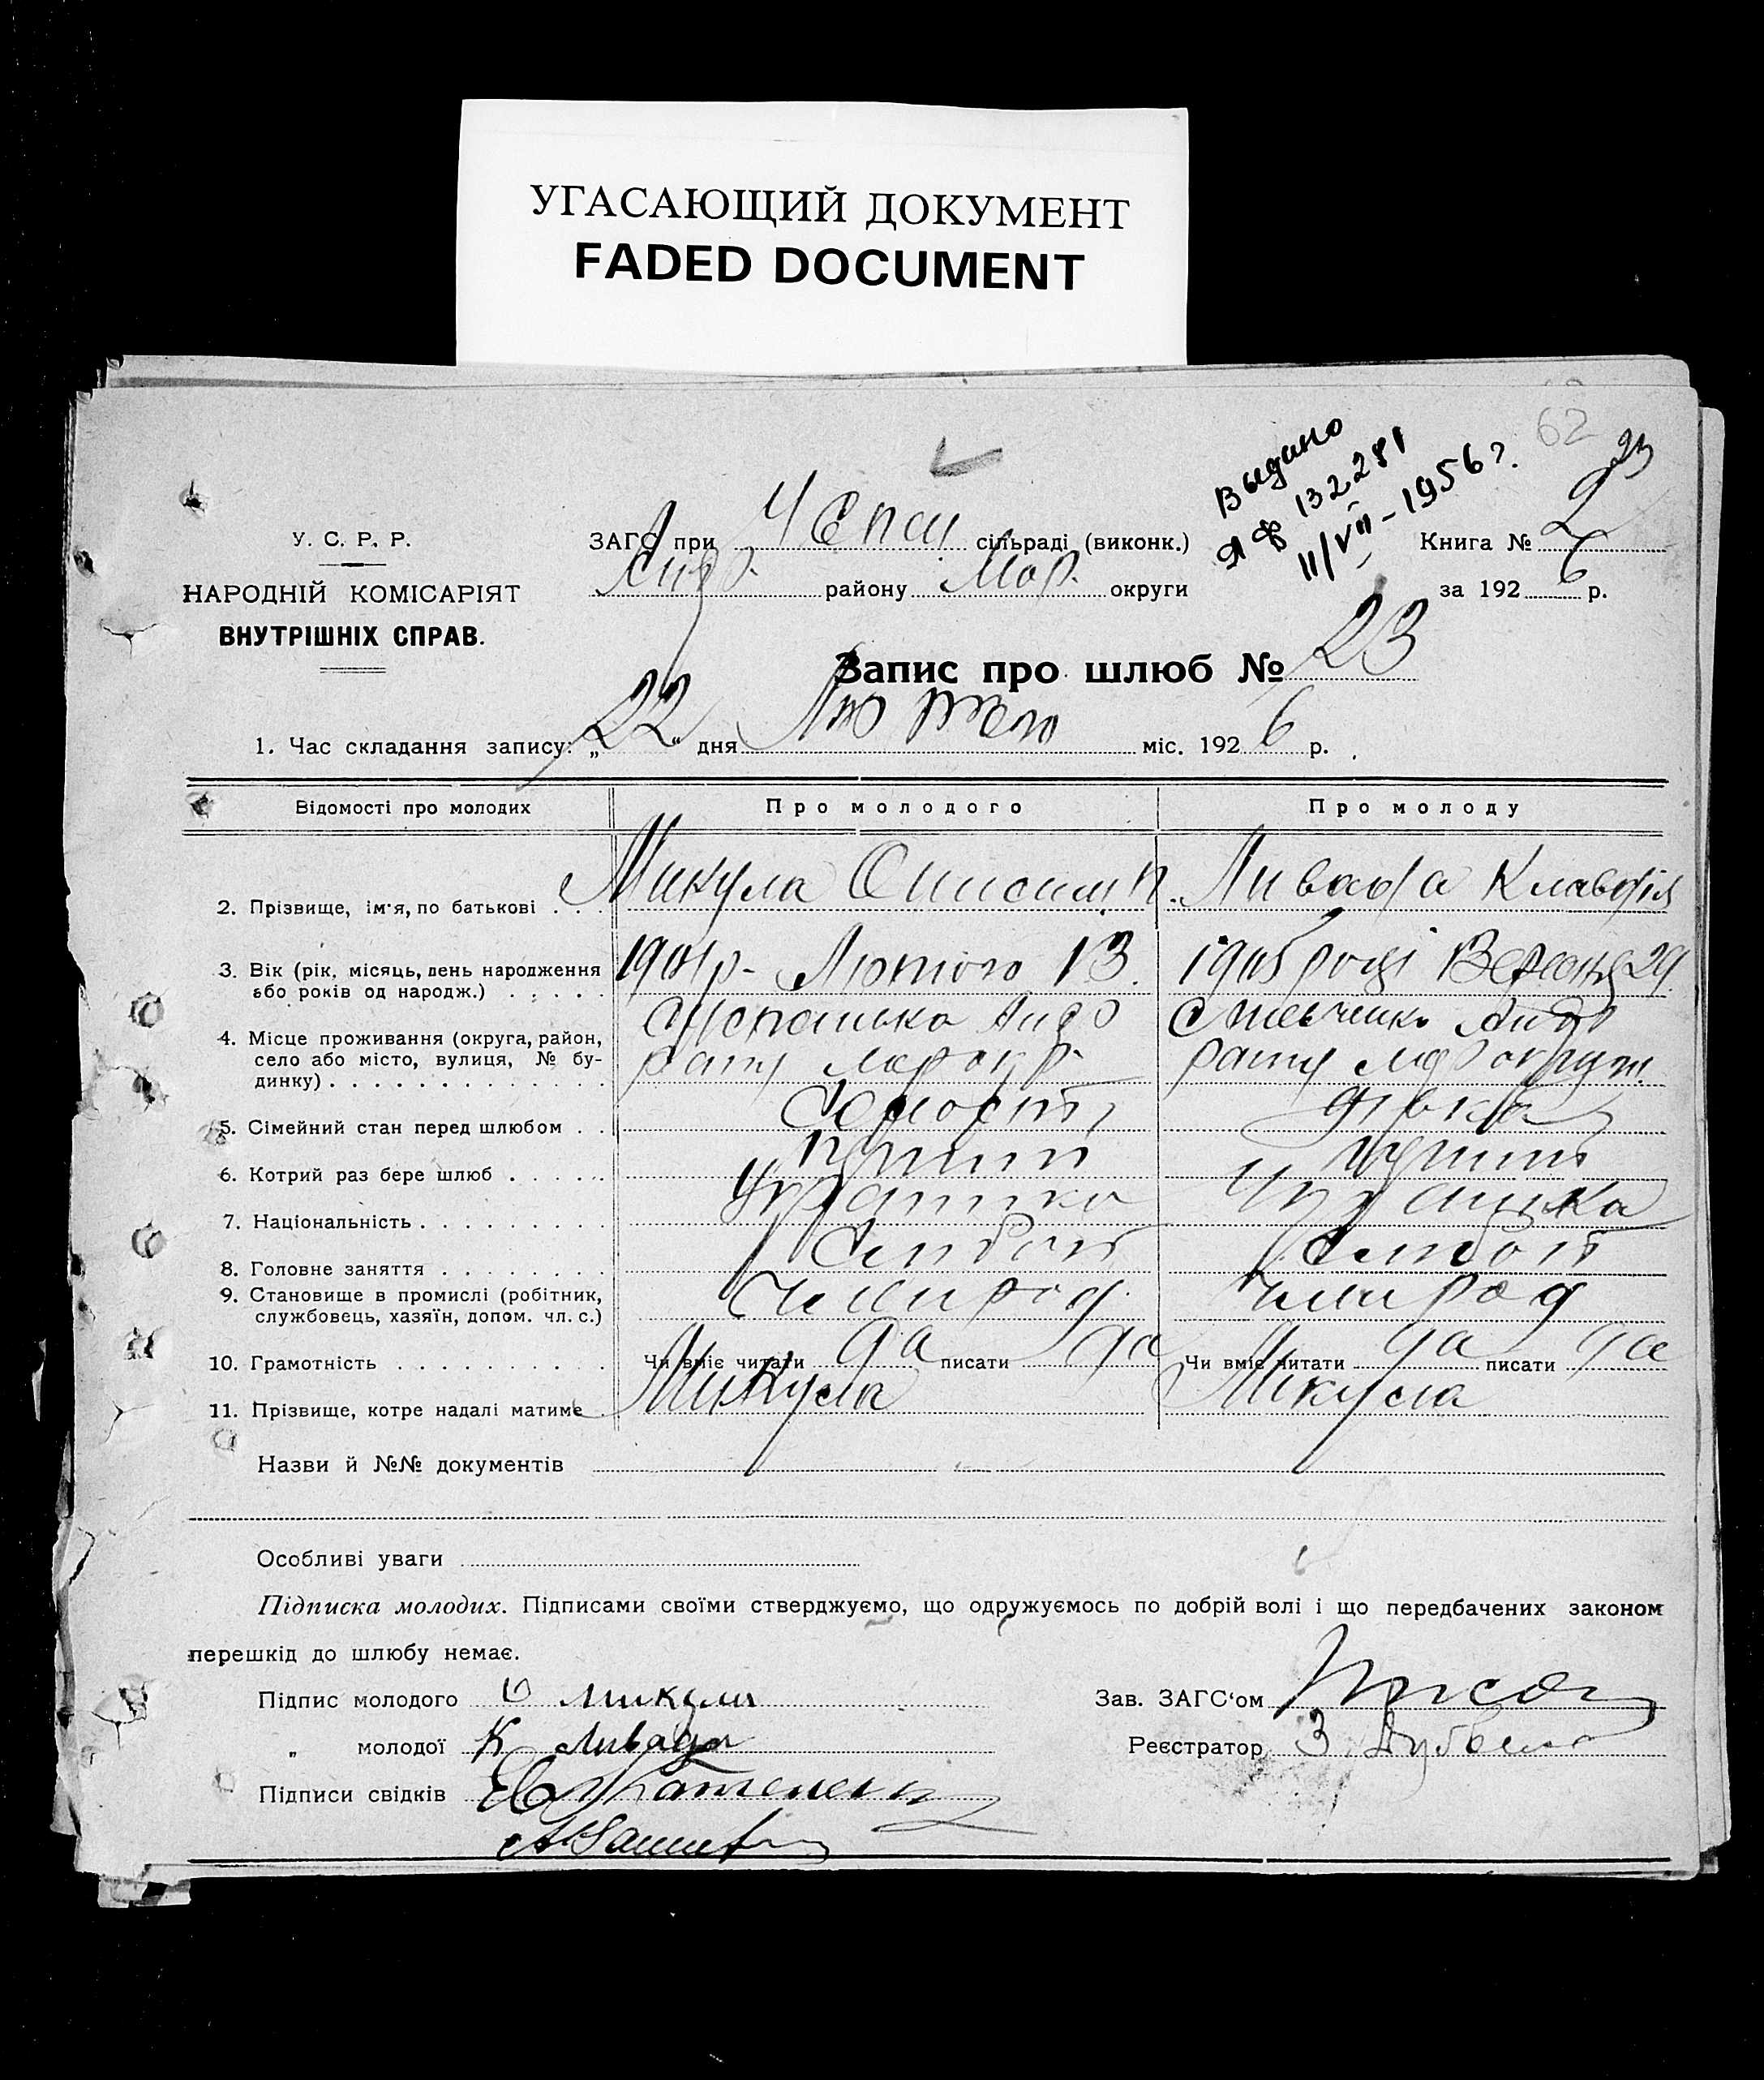 УГАСАЮЩИЙ ДОКУМЕНТ
FADED DOCUMENT
62
23
Выдано
ЯФ 132281
11/VII-1956 г.
У. С. Р. Р.
НАРОДНІЙ КОМІСАРІЯТ
ВНУТРІШНІХ СПРАВ.
ЗАГС при Чепаи сільраді (виконк.)
Андр. району Мар. округи
Книга № 2
за 1926 р.
Запис про шлюб № 23
1. Час складання запису: „22" дня Лютого міс. 1926 р.
Відомості про молодих Про молодого Про молоду
2. Прізвище, ім'я, по батькові . . . Микула Онисим П. Ливада Клавдія
3. Вік (рік, місяць, день народження або років од народж.) . . . . . 1901р. Лютого 13. 1905 році Вересня 29.
4. Місце проживання (округа, район, село або місто, вулиця, № будинку) . . . . . . . . . . . . . .
5. Сімейний стан перед шлюбом . . дівка
6. Котрий раз бере шлюб . . . . .
7. Національність . . . . . . . . . Українка
8. Головне заняття . . . . . . . .
9. Становище в промислі (робітник, службовець, хазяїн, допом. чл. с.) Член род. Член род
10. Грамотність . . . . . . . . . . Чи вміє читати да писати да Чи вміє читати да писати да
11. Прізвище, котре надалі матиме Микула Микула
Назви й №№ документів
Особливі уваги
Підписка молодих. Підписами своїми стверджуємо, що одружуємось по добрій волі і що передбачених законом
перешкід до шлюбу немає.
Підпис молодого О Микула
Зав. ЗАГС'ом
„ молодої К Ливада
Реєстратор З.
Підписи свідків